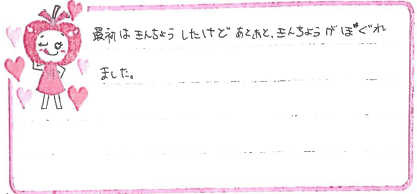 最初はきんちょうしたけど あとあと、きんちょうがほぐれ
ました。